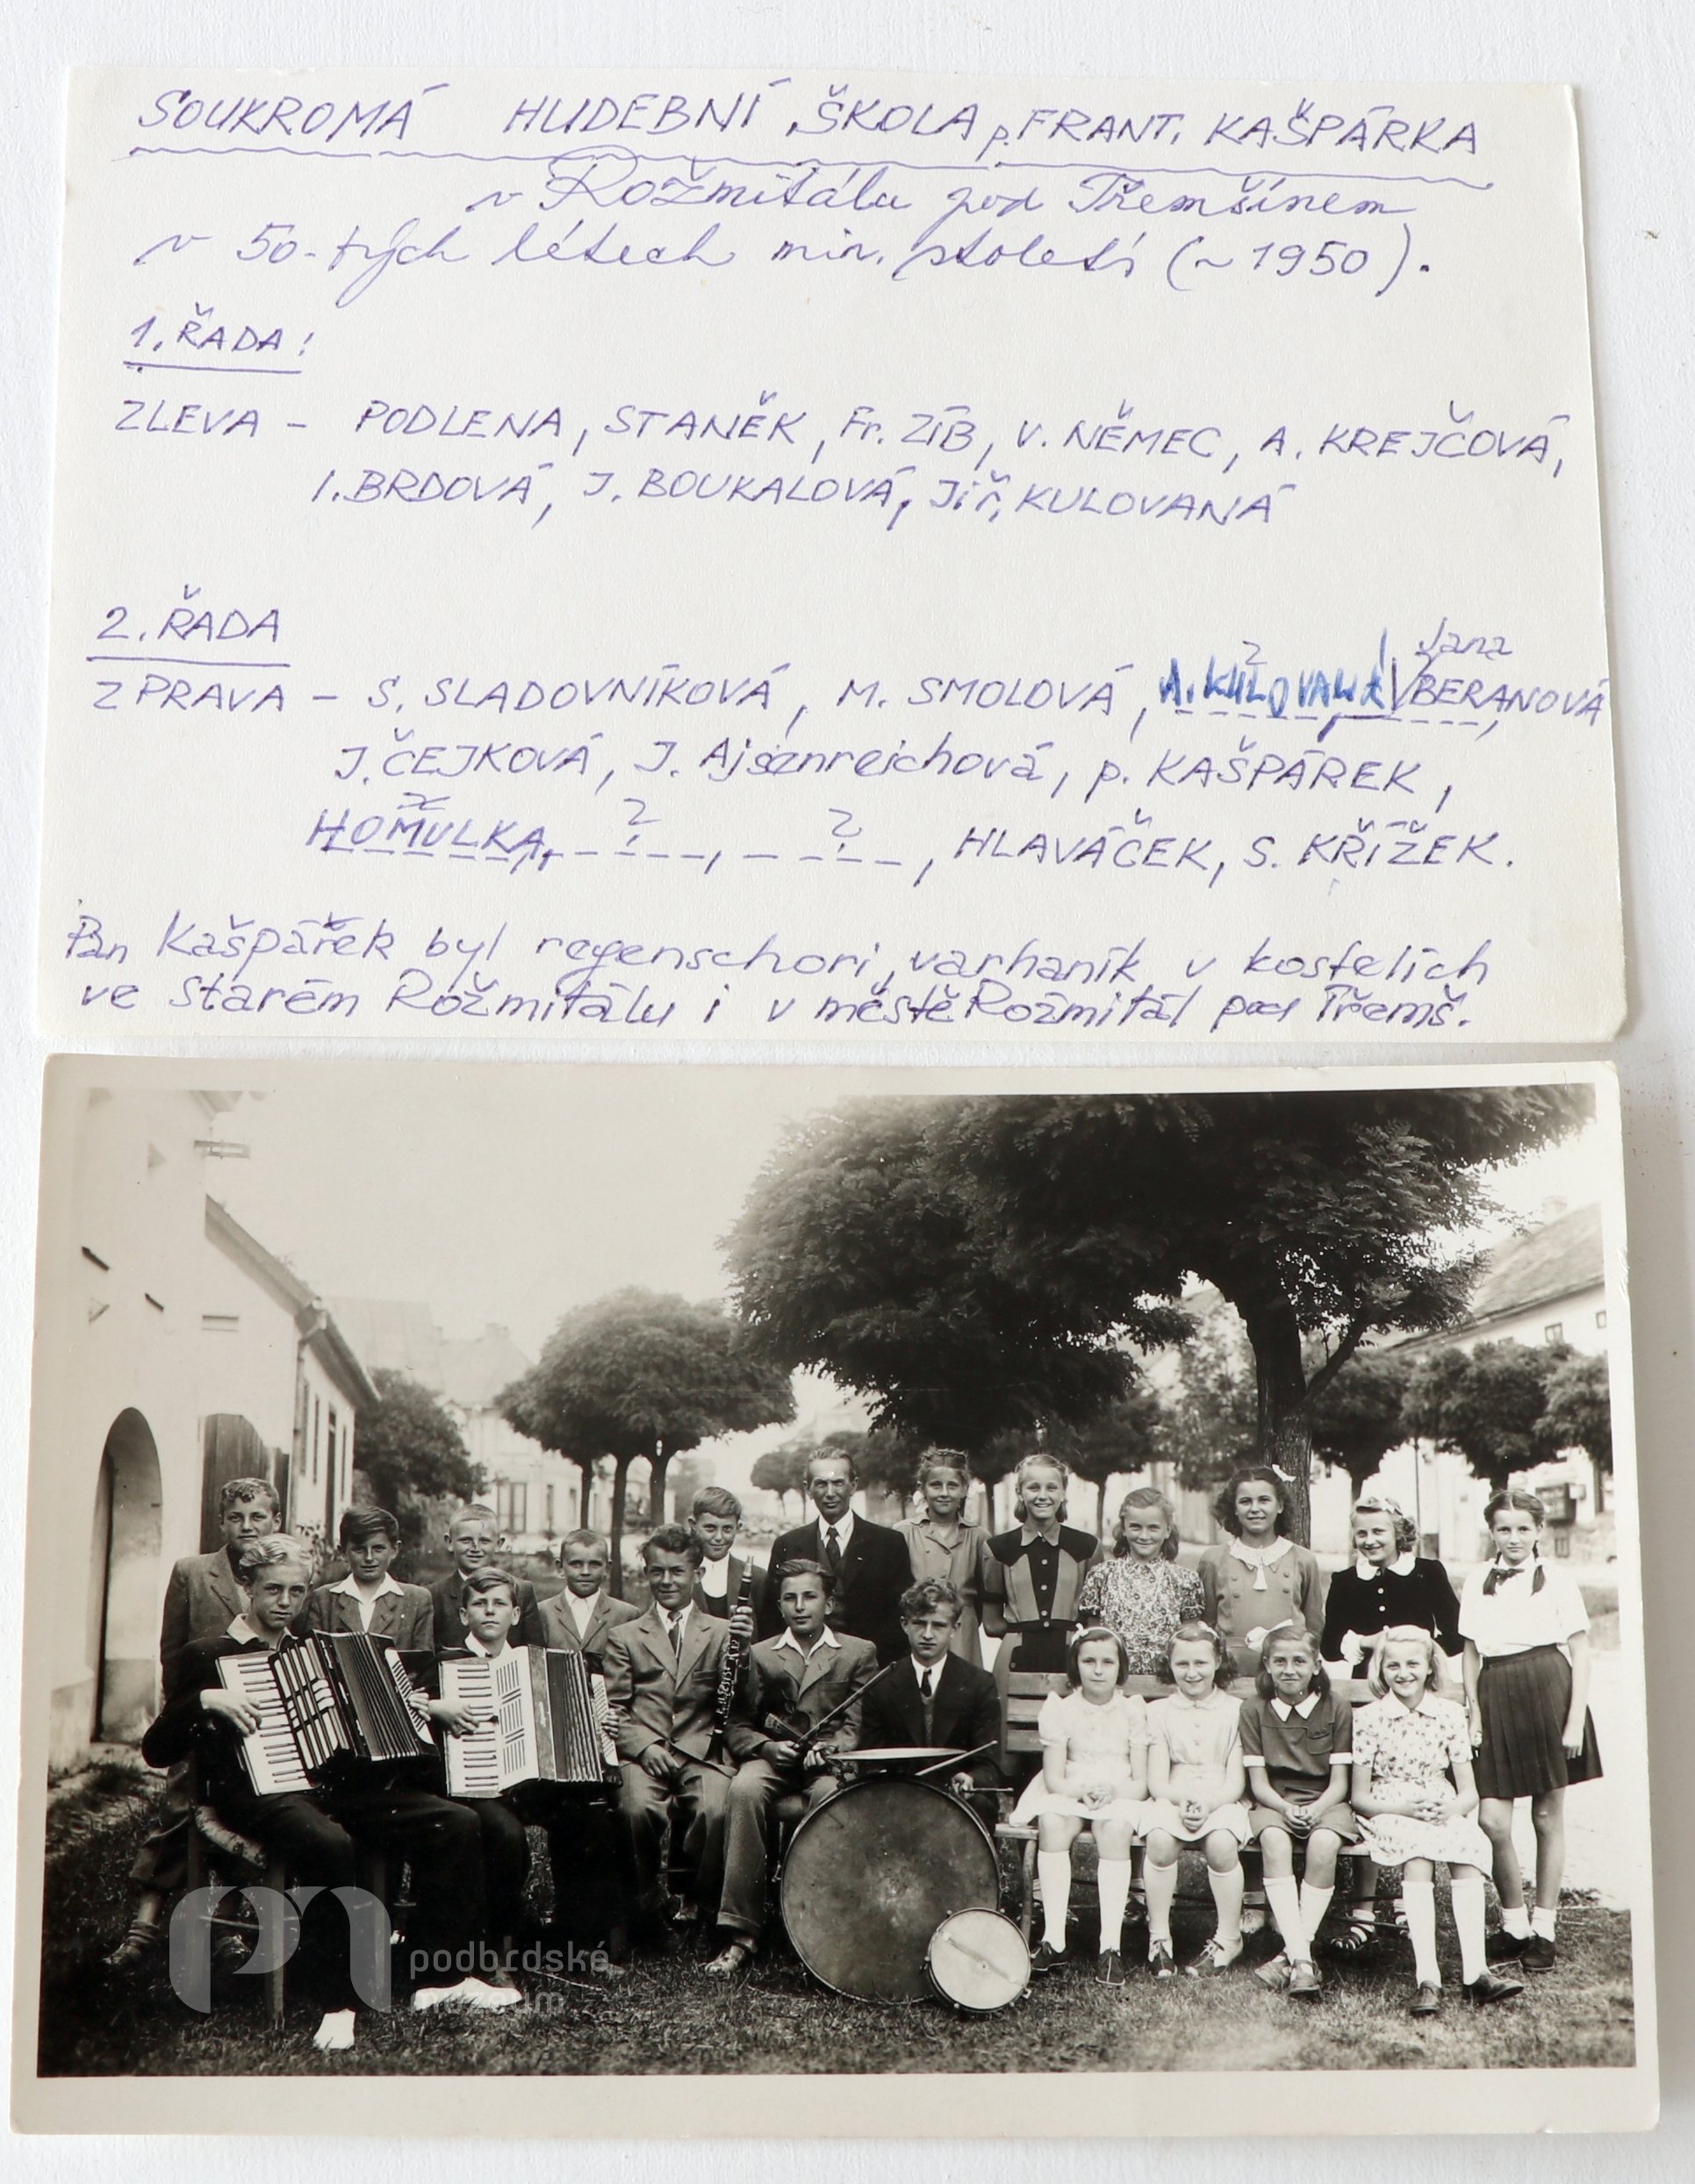 SOUKROMÁ HUDEBNÍ ŠKOLA p. FRANT. KAŠPÁRKA
v Rožmitálu pod Třemšínem
v 50-tých létech min. století (~1950).
1. ŘADA:
ZLEVA – PODLENA, STANĚK, Fr. ZÍB, V. NĚMEC, A. KREJČOVÁ,
I. BRDOVÁ, J. BOUKALOVÁ, Jiř. KULOVANÁ
2. ŘADA
? Jana
ZPRAVA – S. SLADOVNÍKOVÁ, M. SMOLOVÁ, A. KULOVANÁ BERANOVÁ,
J. ČEJKOVÁ, J. Ajsenreichová, p. KAŠPÁREK,
HOMULKA, ?, ?, HLAVÁČEK, S. KŘÍŽEK.
Pan Kašpářek byl regenschori, varhaník v kostelích
ve Starém Rožmitálu i v městě Rožmitál pod Třemš.
podbrdské
muzeum